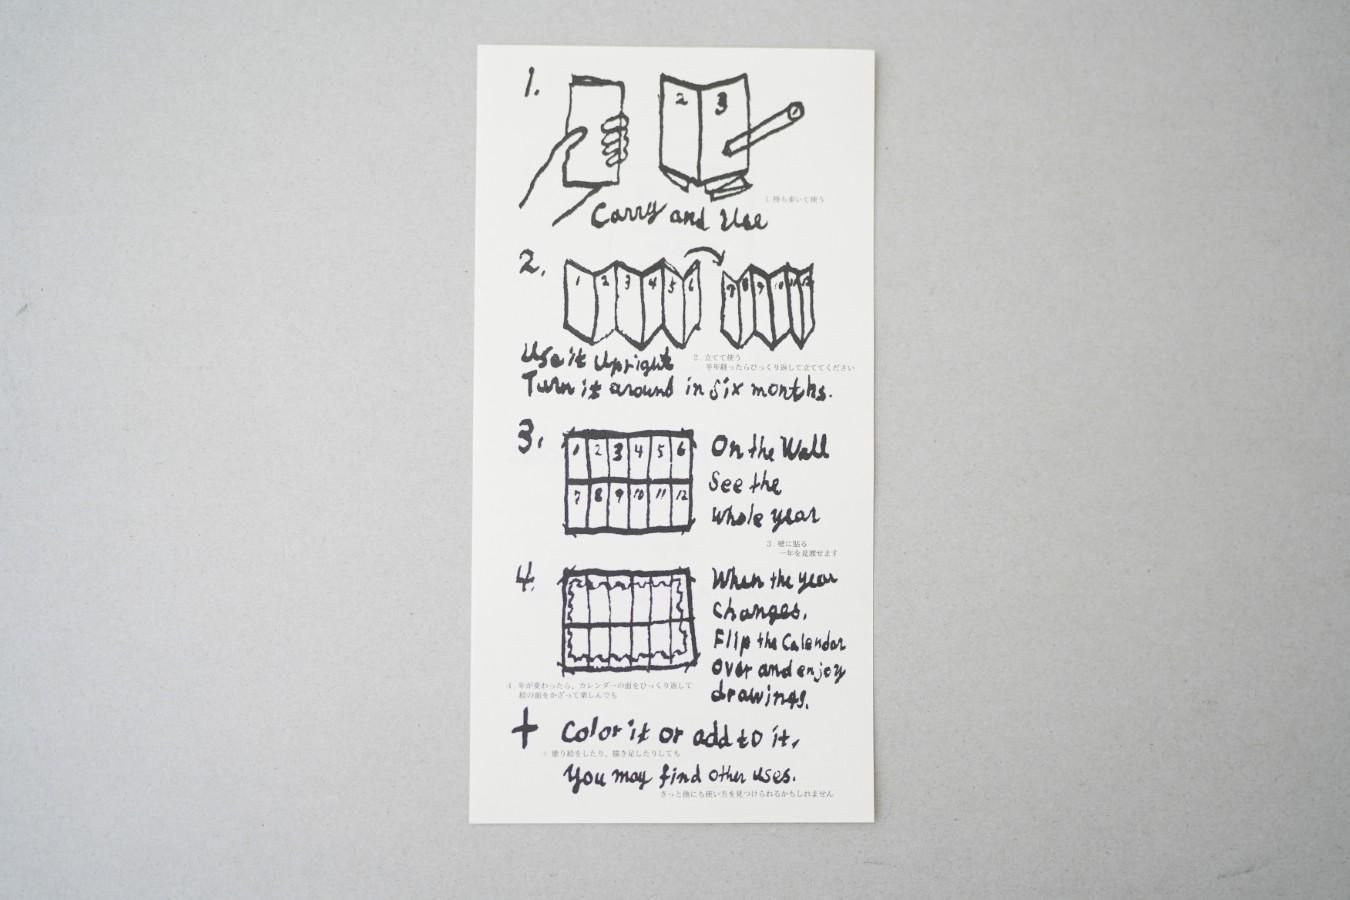 1.
2 3
1. 持ち歩いて使う
Carry and Use
2.
1 2 3 4 5 6 7 8 9 10 11 12
Use it Upright
2. 立てて使う
半年経ったらひっくり返して立ててください
Turn it around in Six months.
3.
1 2 3 4 5 6
7 8 9 10 11 12
On the Wall
See the
whole year
3. 壁に貼る
一年を見渡せます
4.
When the year
changes,
Flip the Calendar
over and enjoy
drawings.
4. 年が変わったら、カレンダーの面をひっくり返して
絵の面をかざって楽しんでも
+ Color it or add to it,
+ 塗り絵をしたり、描き足したりしても
You may find other uses.
きっと他にも使い方を見つけられるかもしれません